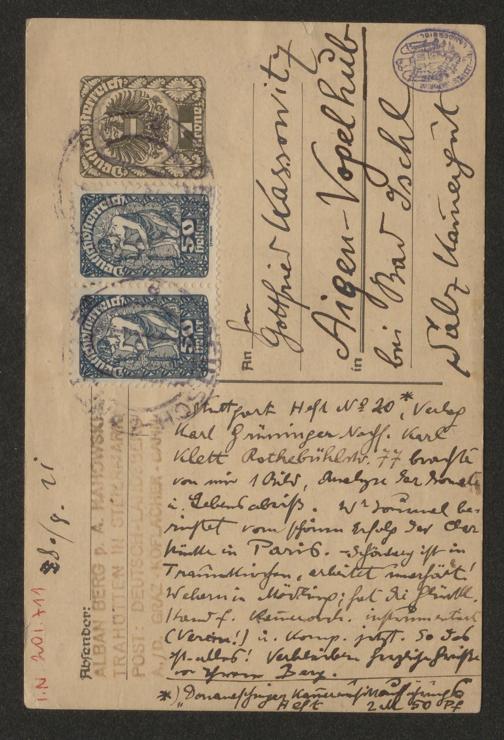 Deutschösterreich
1 Krone
Deutschösterreich
50
Heller
Deutschösterreich
50
Heller
An Gottfried Kassowitz
in Aigen-Vogelhub
bei Bad Ischl
Salzkammergut
Absender:
ALBAN BERG p. A. NAHOWSKI
TRAHÜTTEN IN STEIERMARK
POST DEUTSCH
GRAZ
28./9. 21
I.N 201.711
Stuttgart Heft No 20*, Verlag
Karl Grüninger Nachf. Karl
Klett Rothebühlstr. 77 brachte
von mir 1 Bild, Analyse der Sonate
u. Lebensabriß.
richtet vom schönen Erfolg der
Stücke in Paris. Schönberg ist in
Traunkirchen, arbeitet unerhört!
Webern in Mödling; hat die
instrumentiert
(Verein!) u. komp. jetzt. So das
ist alles! herzliche Grüße
Berg.
*) Donaueschinger Kammermusikaufführungs
Heft 2 M 50 Pf